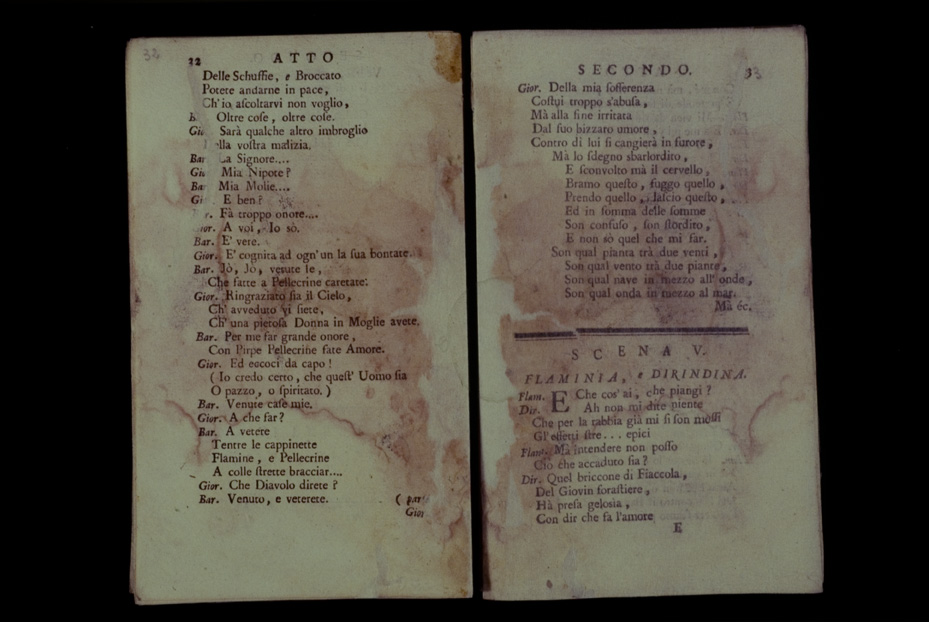 32
32
ATTO
Delle Schuffie, e Broccato
Potete andarne in pace,
Ch'io ascoltarvi non voglio,
Oltre cose, oltre cose.
Sarà qualche altro imbroglio
ella vostra malizia.
Bar La Signore....
Gi Mia Nipote?
Ba Mia Molie....
Gi E ben?
r. Fà troppo onore....
ior. A voi, Io sò.
Bar. E' vere.
Gior. E' cognita ad ogn'un la sua bontate.
Bar. Jò, Jò, venute le,
Che fatte a Pellecrine caretate.
Gior. Ringraziato sia il Cielo,
Ch' avveduto vi siete,
Ch' una pietosa Donna in Moglie avete.
Bar. Per me far grande onore,
Con Pirpe Pellecrine fate Amore.
Gior. Ed eccoci da capo!
( Io credo certo, che quest' Uomo sia
O pazzo, o spiritato. )
Bar. Venute case mie.
Gior. A che far?
Bar. A vetere
Tentre le cappinette
Flamine, e Pellecrine
A colle strette bracciar....
Gior. Che Diavolo direte?
Bar. Venuto, e veterete.
( par
Gior
SECONDO.
33
Gior. Della mia sofferenza
Costui troppo s'abusa,
Mà alla fine irritata
Dal suo bizzaro umore,
Contro di lui si cangierà in furore,
Mà lo sdegno sbarlordito,
E sconvolto mà il cervello,
Bramo questo, fuggo quello,
Prendo quello, lascio questo,
Ed in somma delle somme
Son confuso, son stordito,
E non sò quel che mi far.
Son qual pianta trà due venti,
Son qual vento trà due piante,
Son qual nave in mezzo all' onde,
Son qual onda in mezzo al mar.
Mà &c.
SCENA V.
FLAMINIA, e DIRINDINA.
Flam. E Che cos' ai, che piangi?
Dir. Ah non mi dite niente
Che per la rabbia già mi si son mossi
Gl' effetti stre... epici
Flam. Mà intendere non posso
Ciò che accaduto sia?
Dir. Quel briccone di Fiaccola,
Del Giovin forastiere,
Hà presa gelosia,
Con dir che fa l'amore
E